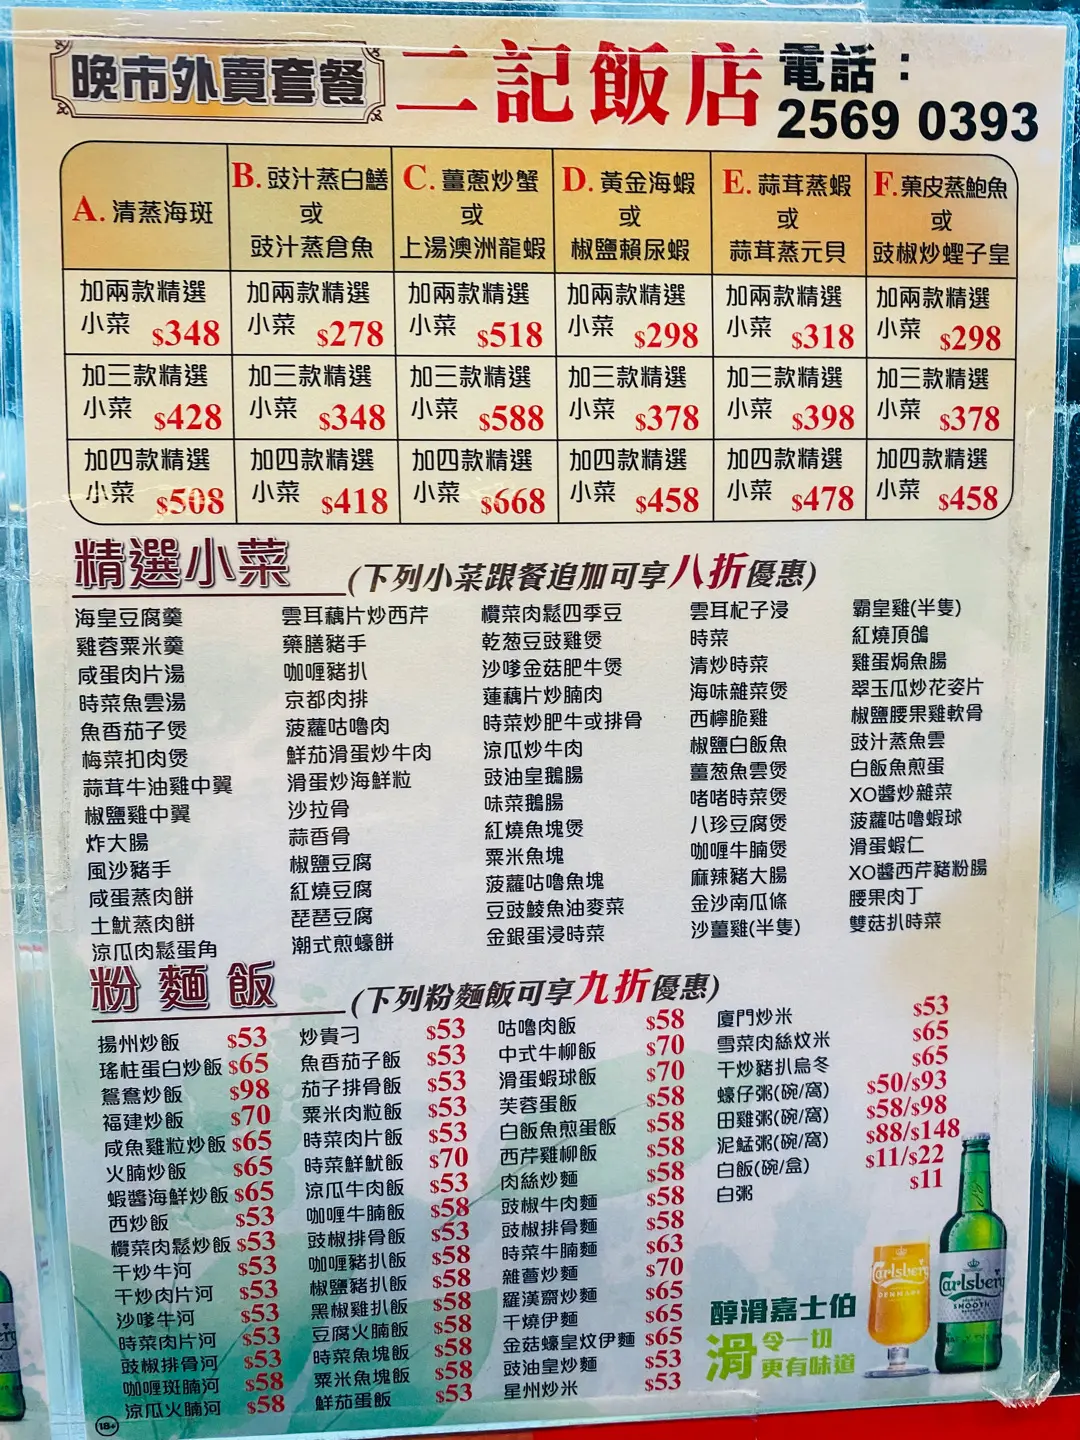 晚市外賣套餐
二記飯店
電話：
2569 0393
A. 清蒸海斑
B. 豉汁蒸白鱔
或
豉汁蒸倉魚
C. 薑蔥炒蟹
或
上湯澳洲龍蝦
D. 黃金海蝦
或
椒鹽賴尿蝦
E. 蒜茸蒸蝦
或
蒜茸蒸元貝
F. 菓皮蒸鮑魚
或
豉椒炒蟶子皇
加兩款精選
小菜 $348
加兩款精選
小菜 $278
加兩款精選
小菜 $518
加兩款精選
小菜 $298
加兩款精選
小菜 $318
加兩款精選
小菜 $298
加三款精選
小菜 $428
加三款精選
小菜 $348
加三款精選
小菜 $588
加三款精選
小菜 $378
加三款精選
小菜 $398
加三款精選
小菜 $378
加四款精選
小菜 $508
加四款精選
小菜 $418
加四款精選
小菜 $668
加四款精選
小菜 $458
加四款精選
小菜 $478
加四款精選
小菜 $458
精選小菜 (下列小菜跟餐追加可享八折優惠)
海皇豆腐羹
雞蓉粟米羹
咸蛋肉片湯
時菜魚雲湯
魚香茄子煲
梅菜扣肉煲
蒜茸牛油雞中翼
椒鹽雞中翼
炸大腸
風沙豬手
咸蛋蒸肉餅
土魷蒸肉餅
涼瓜肉鬆蛋角
雲耳藕片炒西芹
藥膳豬手
咖喱豬扒
京都肉排
菠蘿咕嚕肉
鮮茄滑蛋炒牛肉
滑蛋炒海鮮粒
沙拉骨
蒜香骨
椒鹽豆腐
紅燒豆腐
琵琶豆腐
潮式煎蠔餅
欖菜肉鬆四季豆
乾葱豆豉雞煲
沙嗲金菇肥牛煲
蓮藕片炒腩肉
時菜炒肥牛或排骨
涼瓜炒牛肉
豉油皇鵝腸
味菜鵝腸
紅燒魚塊煲
粟米魚塊
菠蘿咕嚕魚塊
豆豉鯪魚油麥菜
金銀蛋浸時菜
雲耳杞子浸
時菜
清炒時菜
海味雜菜煲
西檸脆雞
椒鹽白飯魚
薑葱魚雲煲
啫啫時菜煲
八珍豆腐煲
咖喱牛腩煲
麻辣豬大腸
金沙南瓜條
沙薑雞(半隻)
霸皇雞(半隻)
紅燒頂鴿
雞蛋焗魚腸
翠玉瓜炒花姿片
椒鹽腰果雞軟骨
豉汁蒸魚雲
白飯魚煎蛋
XO醬炒雜菜
菠蘿咕嚕蝦球
滑蛋蝦仁
XO醬西芹豬粉腸
腰果肉丁
雙菇扒時菜
粉麵飯 (下列粉麵飯可享九折優惠)
揚州炒飯 $53
瑤柱蛋白炒飯 $65
鴛鴦炒飯 $98
福建炒飯 $70
咸魚雞粒炒飯 $65
火腩炒飯 $65
蝦醬海鮮炒飯 $65
西炒飯 $53
欖菜肉鬆炒飯 $53
干炒牛河 $53
干炒肉片河 $53
沙嗲牛河 $53
時菜肉片河 $53
豉椒排骨河 $53
咖喱斑腩河 $58
涼瓜火腩河 $58
炒貴刁 $53
魚香茄子飯 $53
茄子排骨飯 $53
粟米肉粒飯 $53
時菜肉片飯 $53
時菜鮮魷飯 $70
涼瓜牛肉飯 $53
咖喱牛腩飯 $58
豉椒排骨飯 $53
咖喱豬扒飯 $58
椒鹽豬扒飯 $58
黑椒雞扒飯 $58
豆腐火腩飯 $58
時菜魚塊飯 $58
粟米魚塊飯 $58
鮮茄蛋飯 $53
咕嚕肉飯 $58
中式牛柳飯 $70
滑蛋蝦球飯 $70
芙蓉蛋飯 $58
白飯魚煎蛋飯 $58
西芹雞柳飯 $58
肉絲炒麵 $58
豉椒牛肉麵 $58
豉椒排骨麵 $58
時菜牛腩麵 $63
雜薈炒麵 $70
羅漢齋炒麵 $65
干燒伊麵 $65
金菇蠔皇炆伊麵 $65
豉油皇炒麵 $53
星州炒米 $53
廈門炒米 $53
雪菜肉絲炆米 $65
干炒豬扒烏冬 $65
蠔仔粥(碗/窩) $50/$93
田雞粥(碗/窩) $58/$98
泥鯭粥(碗/窩) $88/$148
白飯(碗/盒) $11/$22
白粥 $11
醇滑嘉士伯
滑 令一切
更有味道
Carlsberg
DENMARK
Carlsberg
SMOOTH
18+